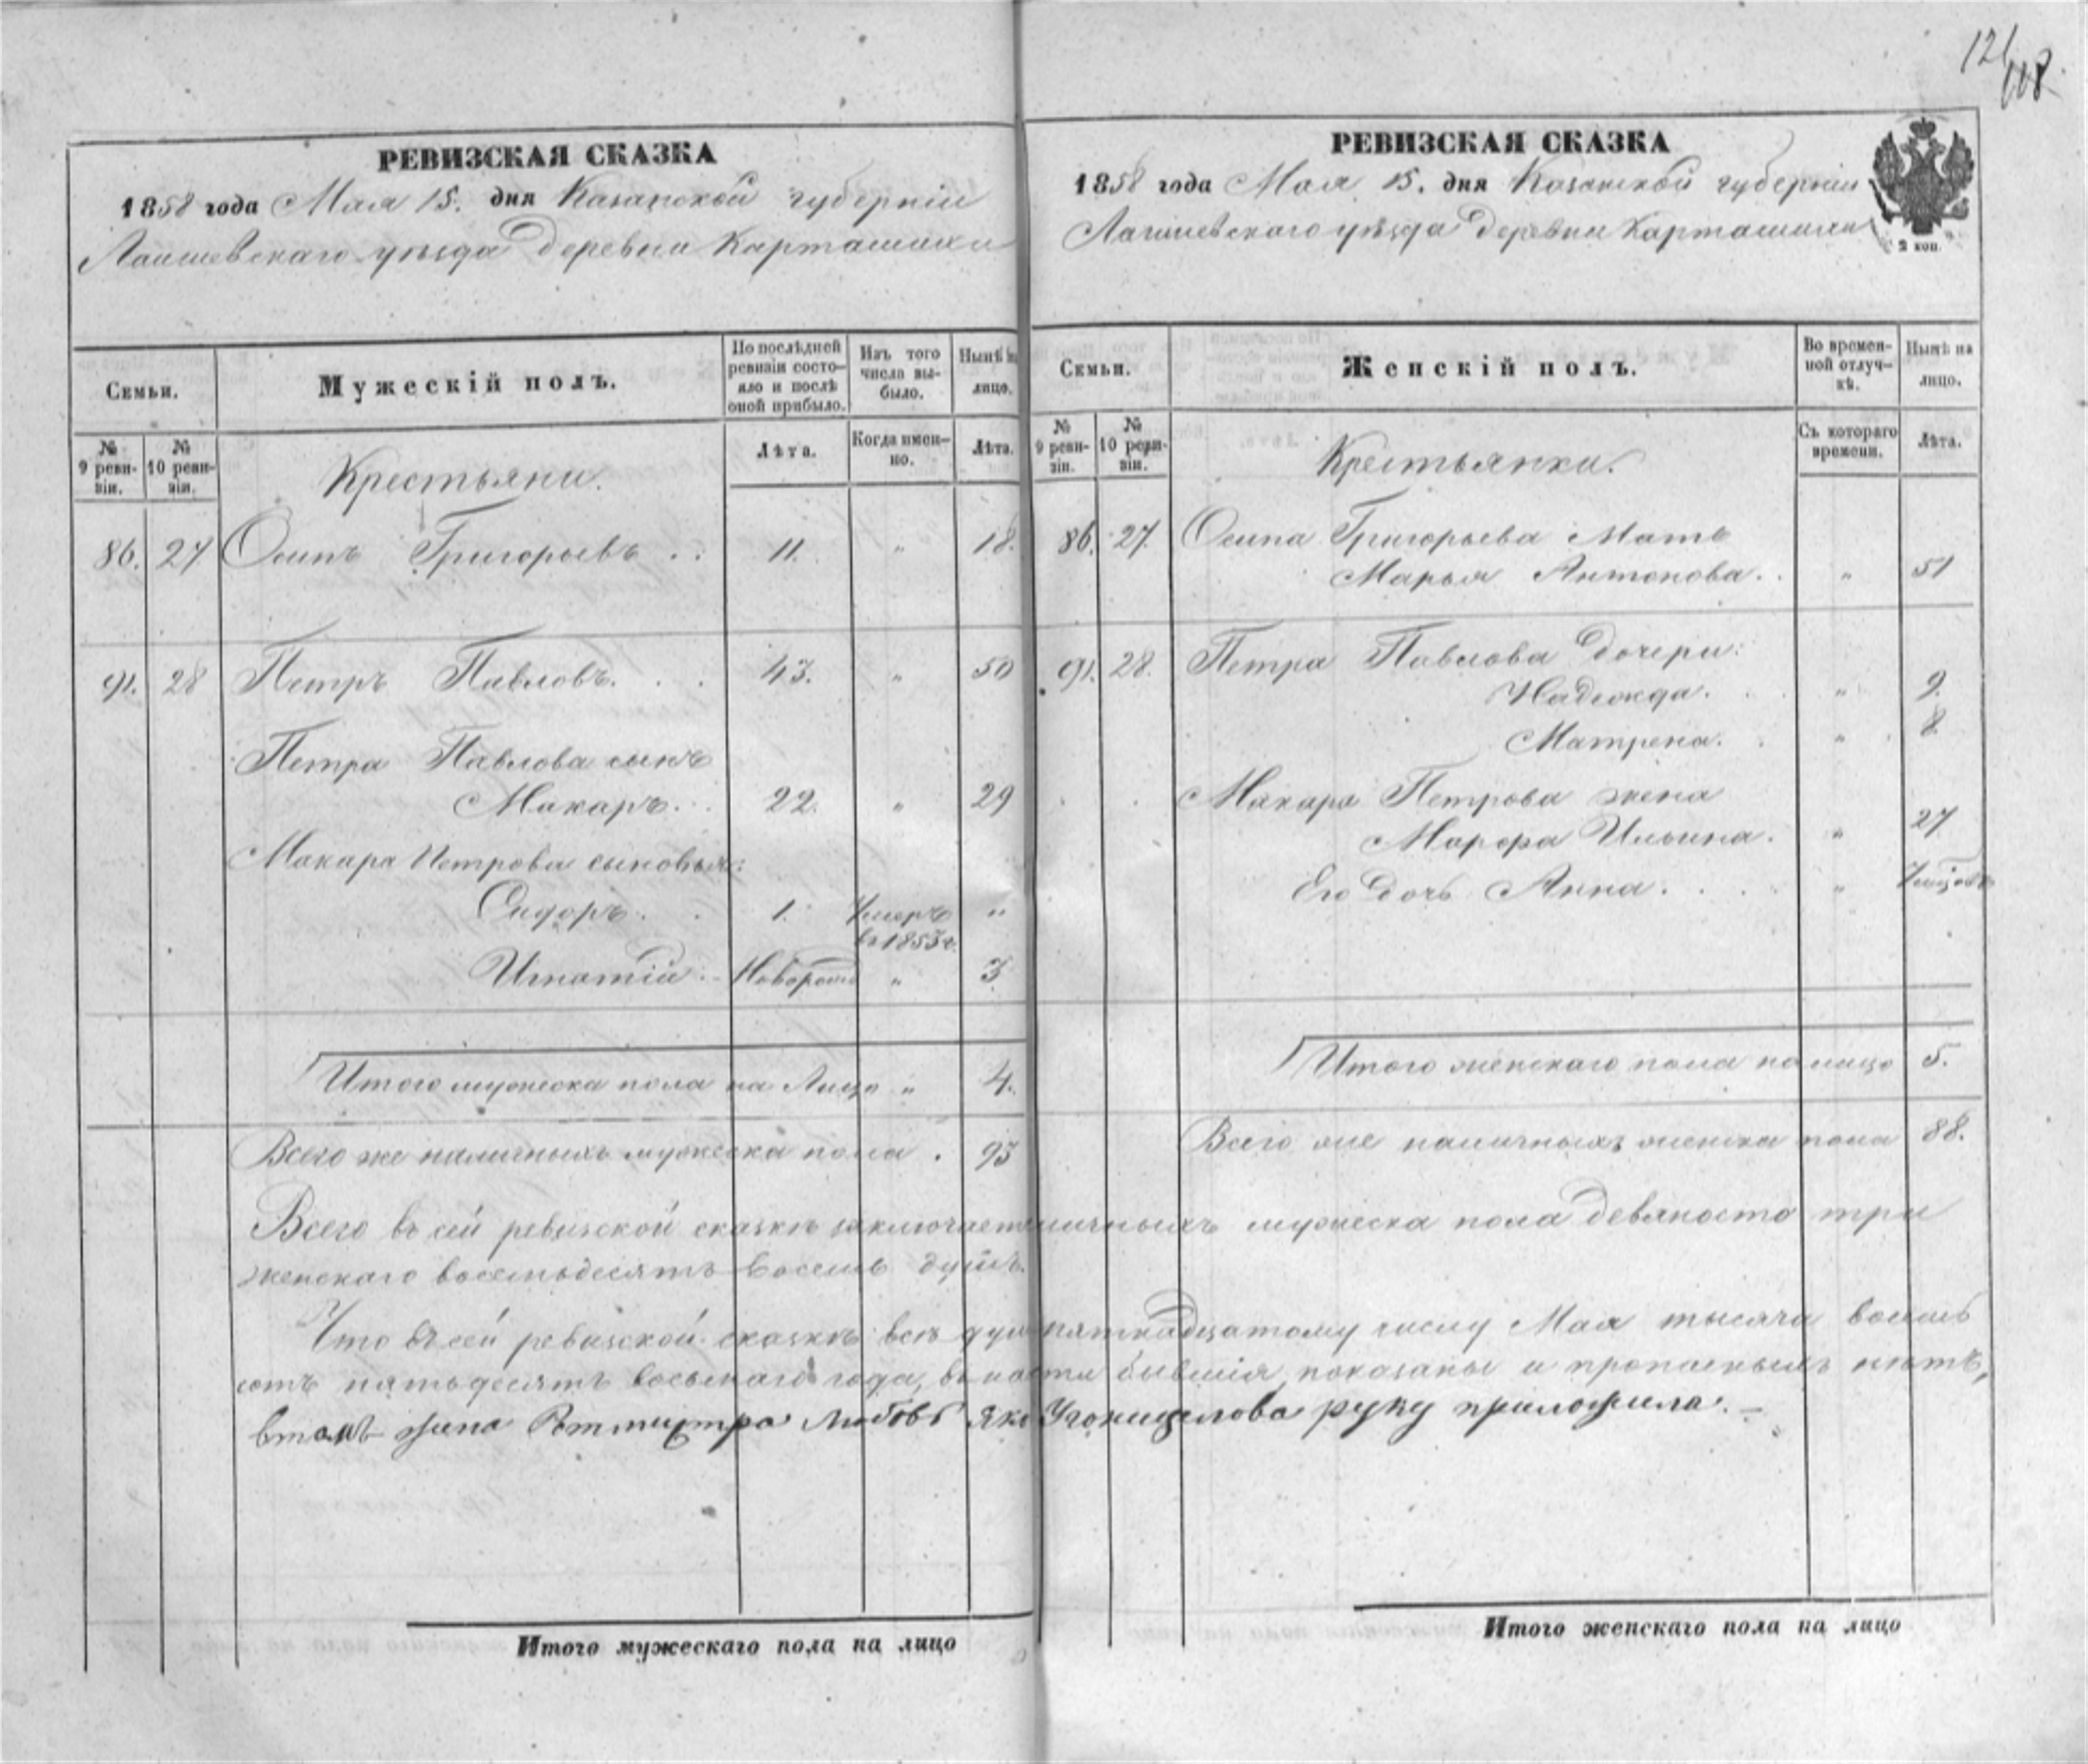 121
118
РЕВИЗСКАЯ СКАЗКА
1858 года Мая 15. дня Казанской губернiи
Лаишевскаго уѣзда деревни Карташихи
Семьи.
Мужескій полъ.
По послѣдней ревизіи состояло и послѣ оной прибыло.
Изъ того числа выбыло.
Нынѣ на лицо.
№ 9 ревизіи.
№ 10 ревизіи.
Крестьяни.
Лѣта.
Когда именно.
Лѣта.
86. 27 Осипъ Григорьевъ . . 11. " 18.
91. 28 Петръ Павловъ. . . 43. " 50
Петра Павлова сынъ
Макаръ. . 22. " 29
Макара Петрова сыновья:
Сидоръ. . 1. Умеръ "
въ 1853 г.
Игнатій. Новорожд " 3
Итого мужеска пола на Лицо " 4.
Всего же наличныхъ мужеска пола . 93
РЕВИЗСКАЯ СКАЗКА
1858 года Мая 15. дня Казанской губернiи
Лаишевскаго уѣзда деревни Карташихи
2 коп.
Семьи.
Женскій полъ.
Во временной отлучкѣ.
Нынѣ на лицо.
№ 9 ревизіи.
№ 10 ревизіи.
Крестьянки.
Съ котораго времени.
Лѣта.
86. 27. Осипа Григорьева Мать
Марья Антонова. . " 51
91. 28. Петра Павлова дочери:
Надежда. . " 9.
Матрена. . " 8
Макара Петрова жена
Марфа Ильина. " 27
Его дочь Анна. . . "
Итого женскаго пола на лицо 5.
Всего же наличныхъ женска пола 88.
Всего въ сей ревизской сказкѣ наличныхъ мужеска пола девяносто три
женскаго восемьдесятъ восемь душъ.
Что въ сей ревизской сказкѣ всѣ пятнадцатому числу Мая тысяча восемь
сотъ пятьдесятъ восьмаго года, бывшія показаны и прописныхъ нѣтъ,
втомъ жина Ротмистра Любовь руку приложила. —
Итого мужескаго пола на лицо
Итого женскаго пола на лицо